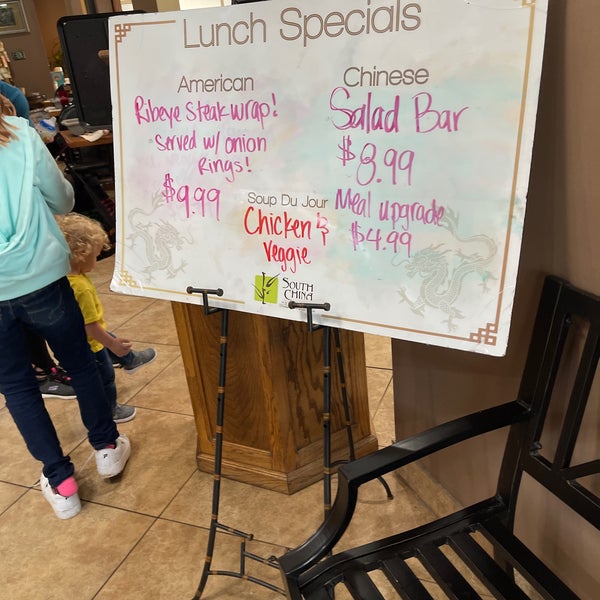 Lunch Specials
American
Ribeye Steak wrap!
Served w/ onion
Rings!
$9.99
Chinese
Salad Bar
$8.99
Meal upgrade
$4.99
Soup Du Jour
Chicken &
Veggie
SOUTH
CHINA